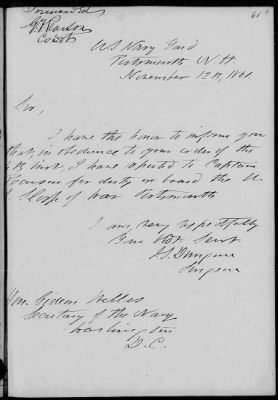 Forwarded
G F Pearson
Comdt
US Navy Yard
Portsmouth N.H.
November 12th, 1861.
Sir,
I have the honor to inform you
that, in obedience to your order of the
inst, I have reported to Captain
for duty on board the U.
Sloop of War Portsmouth
I am, very respectfully
Your Obt. Servt.
Surgeon
Hon. Gideon Welles
Secretary of the Navy
Washington
D.C.